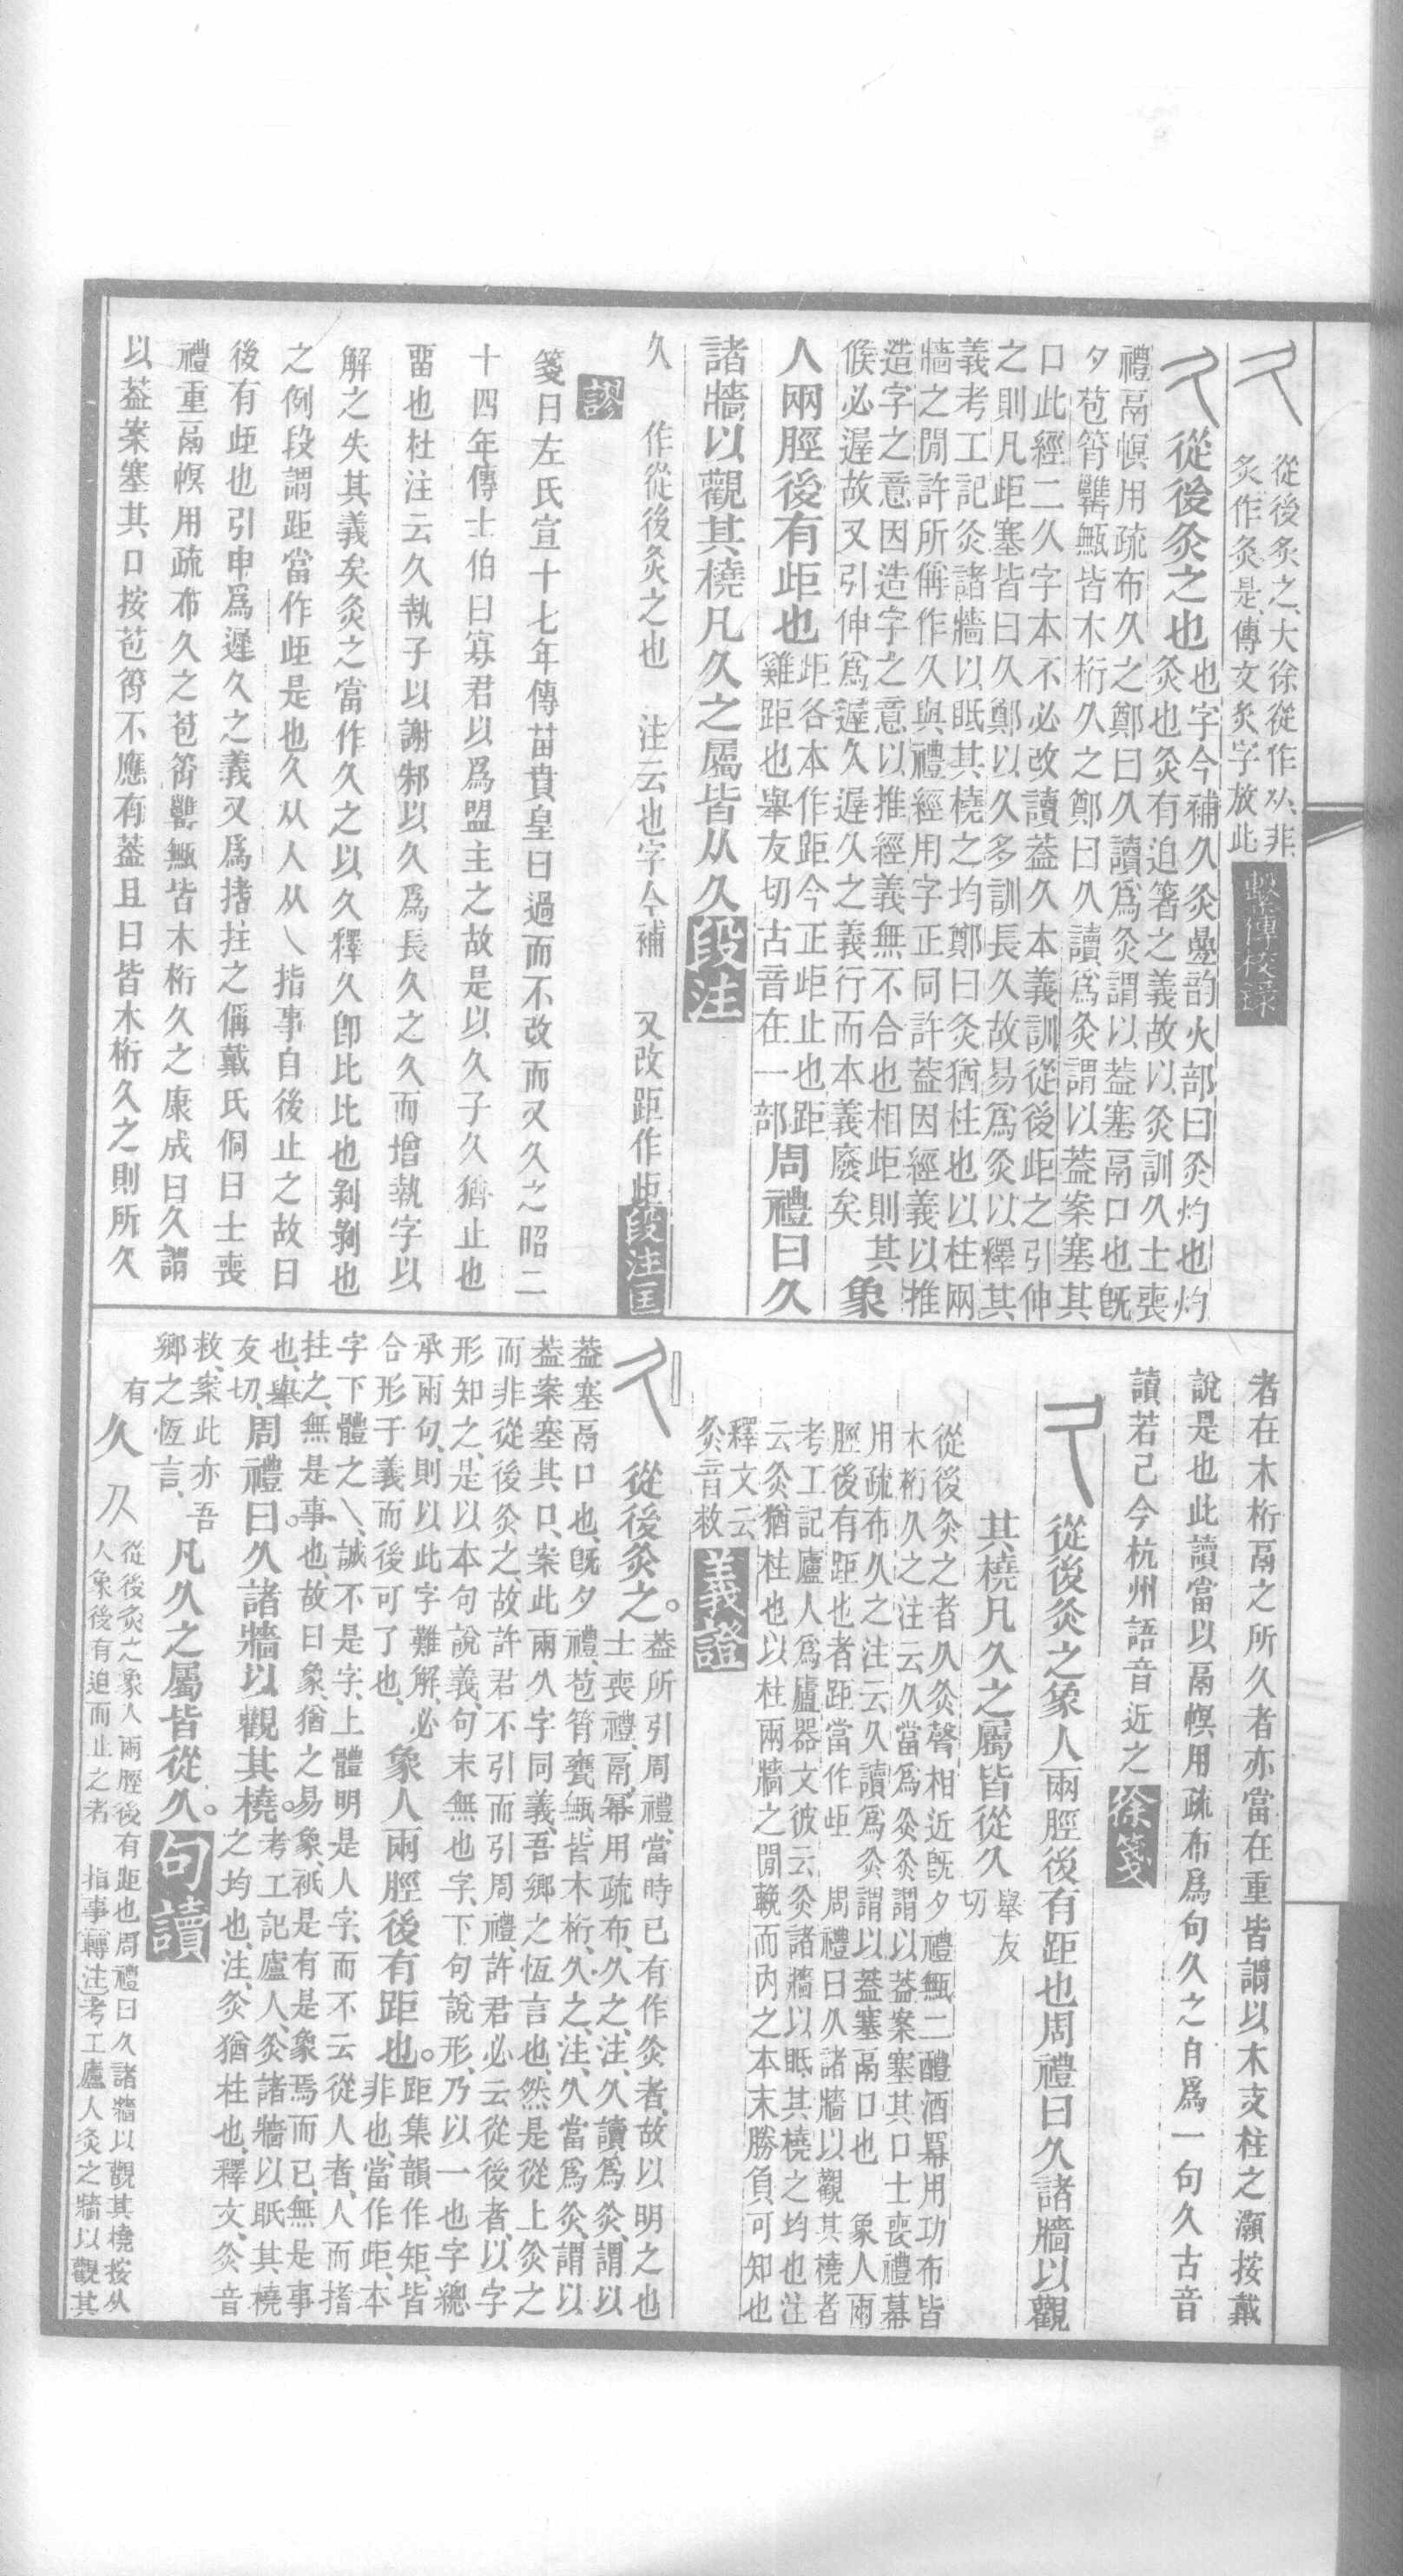 從後炙之、大徐從作从非、
炙作灸是、傳文炙字放此
繫傳校錄
從後灸之也
也字今補久灸疊韵火部曰灸灼也灼
灸也灸有迫箸之義故以灸訓久士喪
禮鬲幎用疏布久之鄭曰久讀爲灸謂以葢塞鬲口也旣
夕苞筲甕甒皆木桁久之鄭曰久讀爲灸謂以葢案塞其
口此經二久字本不必改讀葢久本義訓從後歫之引伸
之則凡歫塞皆曰久鄭以久多訓長久故易爲灸以釋其
義考工記灸諸牆以眂其橈之均鄭曰灸猶柱也以柱兩
牆之閒許所偁作久與禮經用字正同許葢因經義以推
造字之意因造字之意以推經義無不合也相歫則其
候必遲故又引伸爲遲久遲久之義行而本義廢矣
象
人兩脛後有歫也
歫各本作距今正歫止也距
雞距也舉友切古音在一部
周禮曰久
諸牆以觀其橈凡久之屬皆从久
段注
久　作從後灸之也　注云也字今補　又改距作歫
段注匡
謬
箋曰左氏宣十七年傳苗賁皇曰過而不改而又久之昭二
十四年傳士伯曰寡君以爲盟主之故是以久子久猶止也
畱也杜注云久執子以謝邾以久爲長久之久而增執字以
解之失其義矣灸之當作久之以久釋久卽比比也剝剝也
之例段謂距當作歫是也久从人从乀指事自後止之故曰
後有歫也引申爲遲久之義又爲揩拄之偁戴氏侗曰士喪
禮重鬲幎用疏布久之苞筲甕甒皆木桁久之康成曰久謂
以葢案塞其口按苞筲不應有葢且曰皆木桁久之則所久
者在木桁鬲之所久者亦當在重皆謂以木支柱之灝按戴
說是也此讀當以鬲幎用疏布爲句久之自爲一句久古音
讀若己今杭州語音近之
徐箋
從後灸之象人兩脛後有距也周禮曰久諸牆以觀
其橈凡久之屬皆從久
舉友
切
從後灸之者久灸聲相近旣夕禮甒二醴酒冪用功布皆
木桁久之注云久當爲灸灸謂以葢案塞其口士喪禮冪
用疏布久之注云久讀爲灸謂以葢塞鬲口也　象人兩
脛後有距也者距當作歫　周禮曰久諸牆以觀其橈者
考工記廬人爲廬器文彼云灸諸牆以眂其橈之均也注
云灸猶柱也以柱兩牆之閒輓而內之本末勝負可知也
釋文云
灸音救
義證
從後灸之。
葢所引周禮、當時已有作灸者、故以明之也
士喪禮、鬲冪用疏布、久之、注、久讀爲灸、謂以
葢塞鬲口也、旣夕禮、苞筲甕甒、皆木桁、久之、注、久當爲灸、謂以
葢案塞其口、案此兩久字同義、吾鄉之恆言也、然是從上灸之
而非從後灸之、故許君不引而引周禮、許君必云從後者、以字
形知之、是以本句說義、句末無也字、下句說形、乃以一也字總
承兩句、則以此字難解、必
合形于義而後可了也、
象人兩脛後有距也。
距集韻作矩、皆
非也、當作歫、本
字下體之乀、誠不是字、上體明是人字、而不云從人者、人而揩
拄之、無是事也、故曰象、猶之易象、祇是有是象焉而已、無是事
也、舉
友切、
周禮曰。久諸牆以觀其橈。
考工記廬人、灸諸牆以眂其橈
之均也、注、灸猶柱也、釋文、灸音
救、案此亦吾
鄉之恆言、
凡久之屬皆從久。
句讀
有
久
從後灸之象人兩脛後有距也周禮曰久諸牆以觀其橈按从
人象後有迫而止之者　指事轉注考工廬人灸之牆以觀其